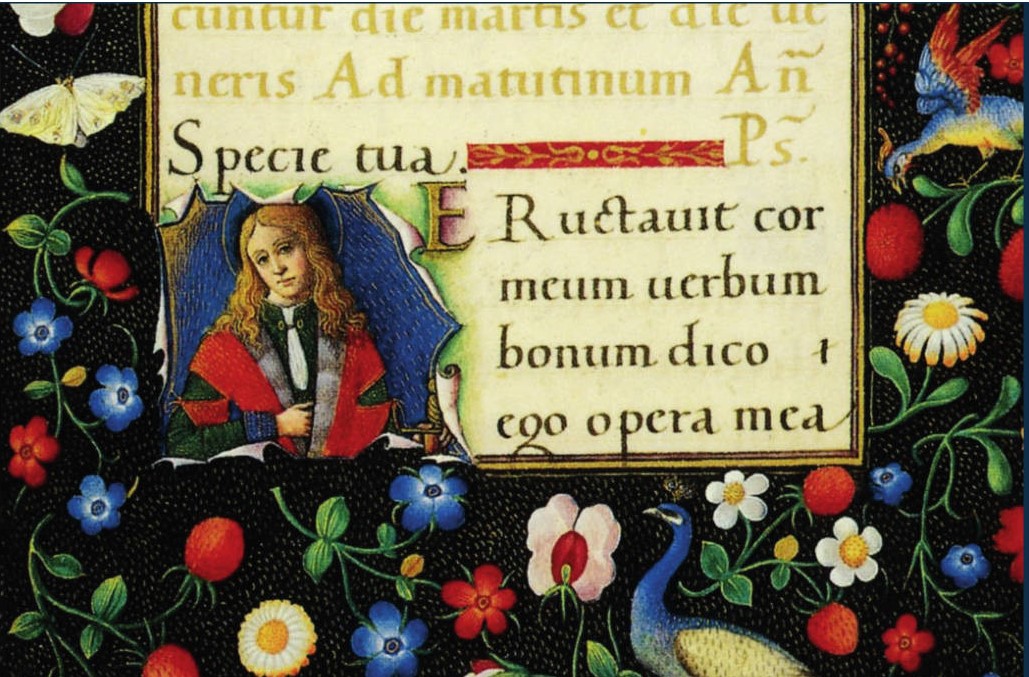 cuntur die martis et die ue
neris Ad matutinum Añ
Specie tua. Ps̃.
ERuctauit cor
meum uerbum
bonum dico ⁊
ego opera mea